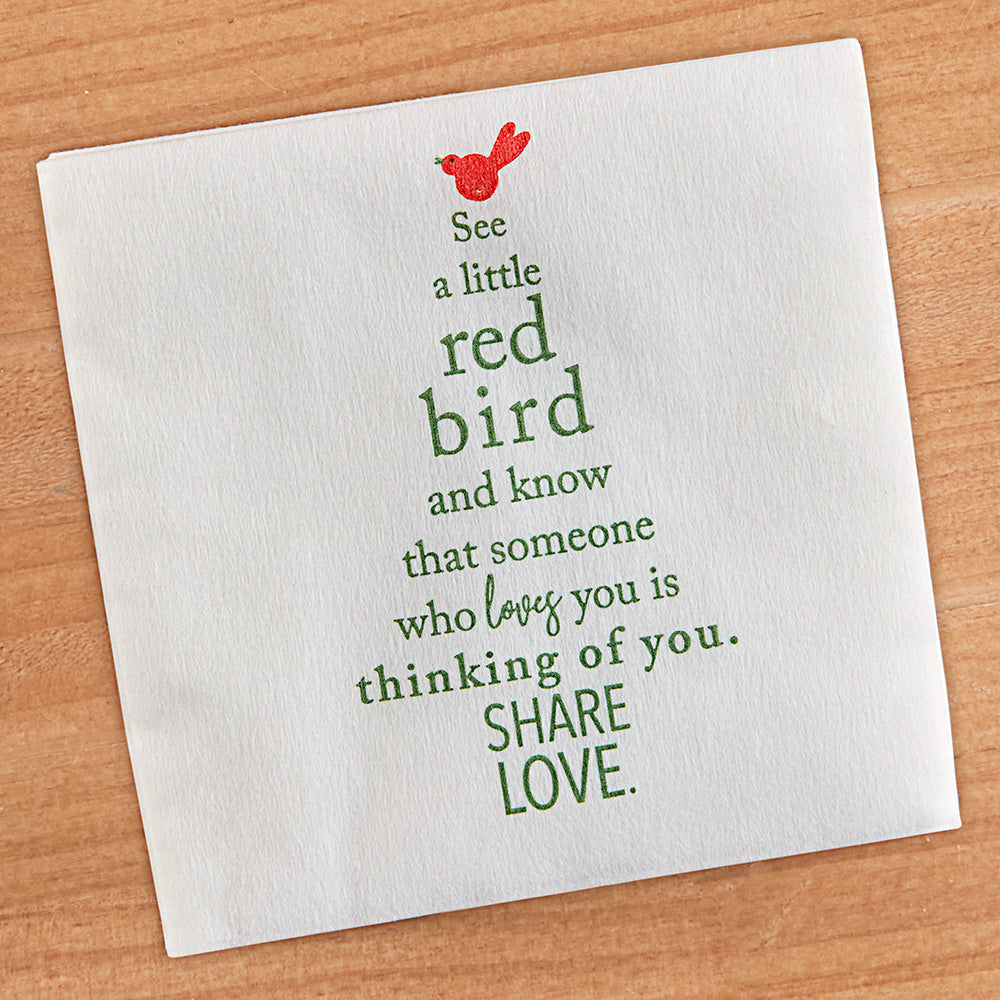 See
a little
red
bird
and know
that someone
who loves you is
thinking of you.
SHARE
LOVE.